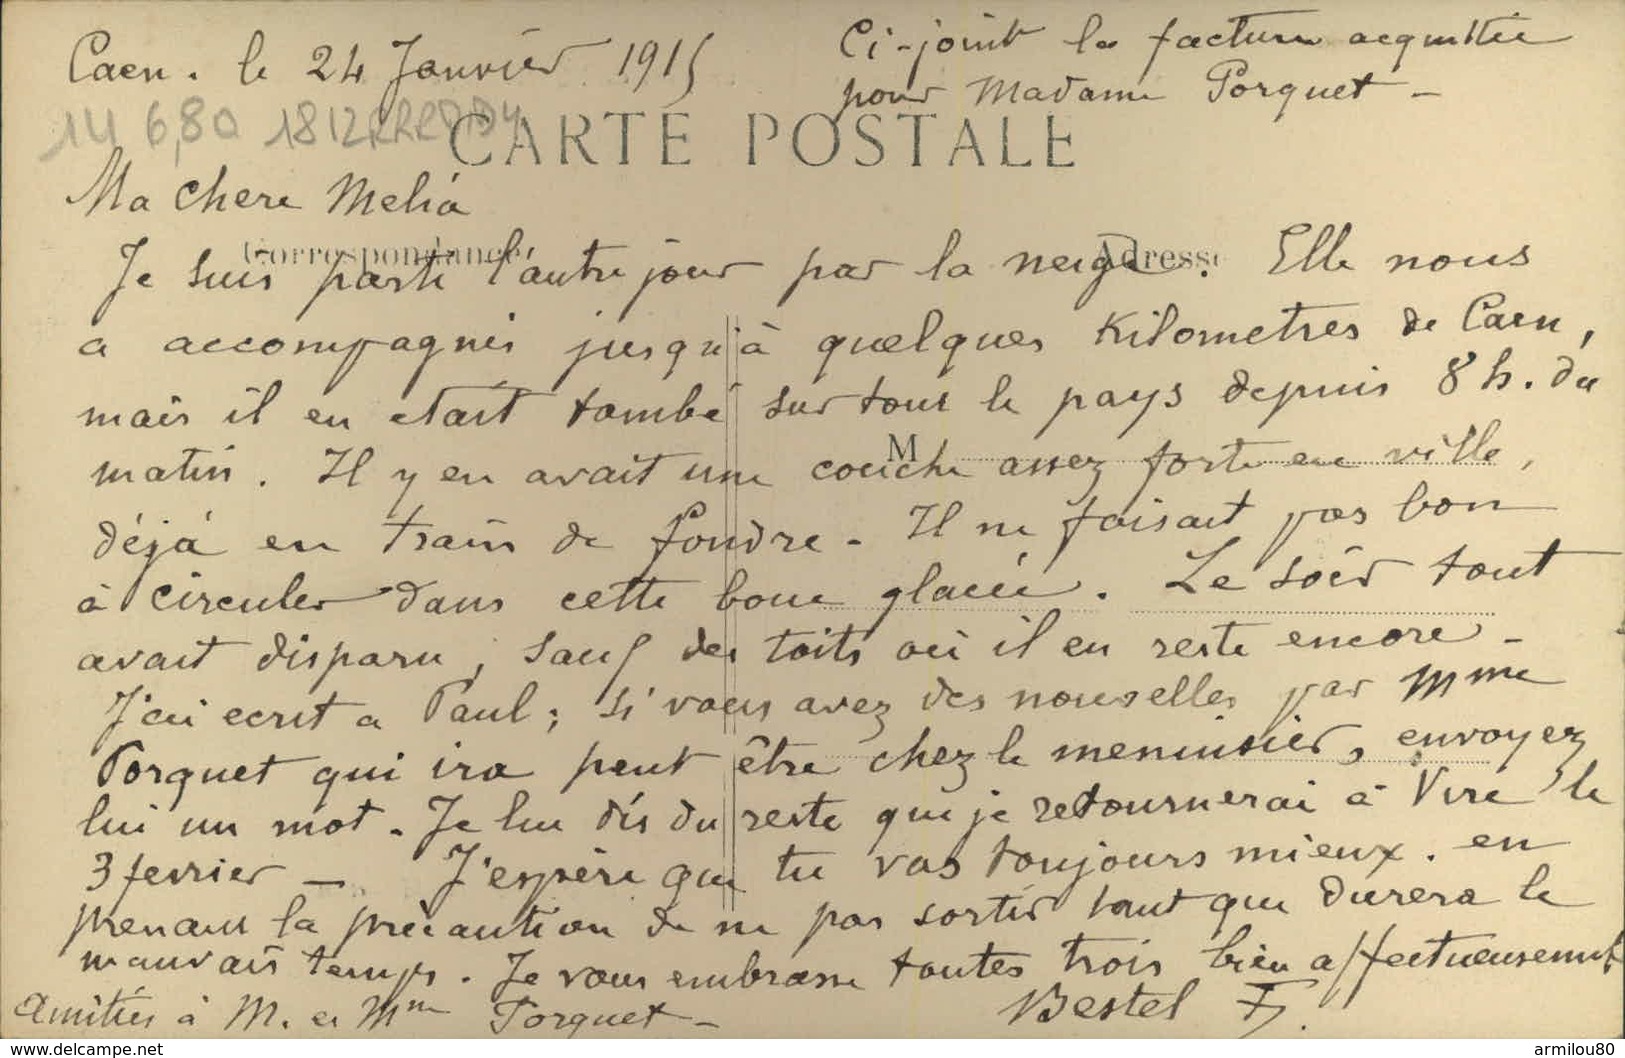 Caen. le 24 Janvier 1915
Ci-joint la facture acquittée
pour Madame Porquet -
14 6,80 1812
CARTE POSTALE
Ma chere Melia
Correspondance
Adresse
Je suis parti l'autre jour par la neige. Elle nous
a accompagnés jusqu'à quelques Kilometres de Caen,
mais il en était tombé sur tout le pays depuis 8 h. du
M
matin. Il y en avait une couche assez forte en ville,
déjà en train de fondre - Il ne faisait pas bon
à circuler dans cette boue glacée. Le soir tout
avait disparu, sauf des toits où il en reste encore -
J'ai ecrit a Paul; si vous avez des nouvelles par Mme
Porquet qui ira peut être chez le menuisier, envoyez
lui un mot. Je lui dis du reste que je retournerai à Vire le
3 fevrier - J'espère que tu vas toujours mieux. en
prenant la précaution de ne pas sortir tant que durera le
mauvais temps. Je vous embrasse toutes trois bien affectueusement
Amitiés à M. et Mme Porquet -
Bestel F.
www.delcampe.net
armilou80